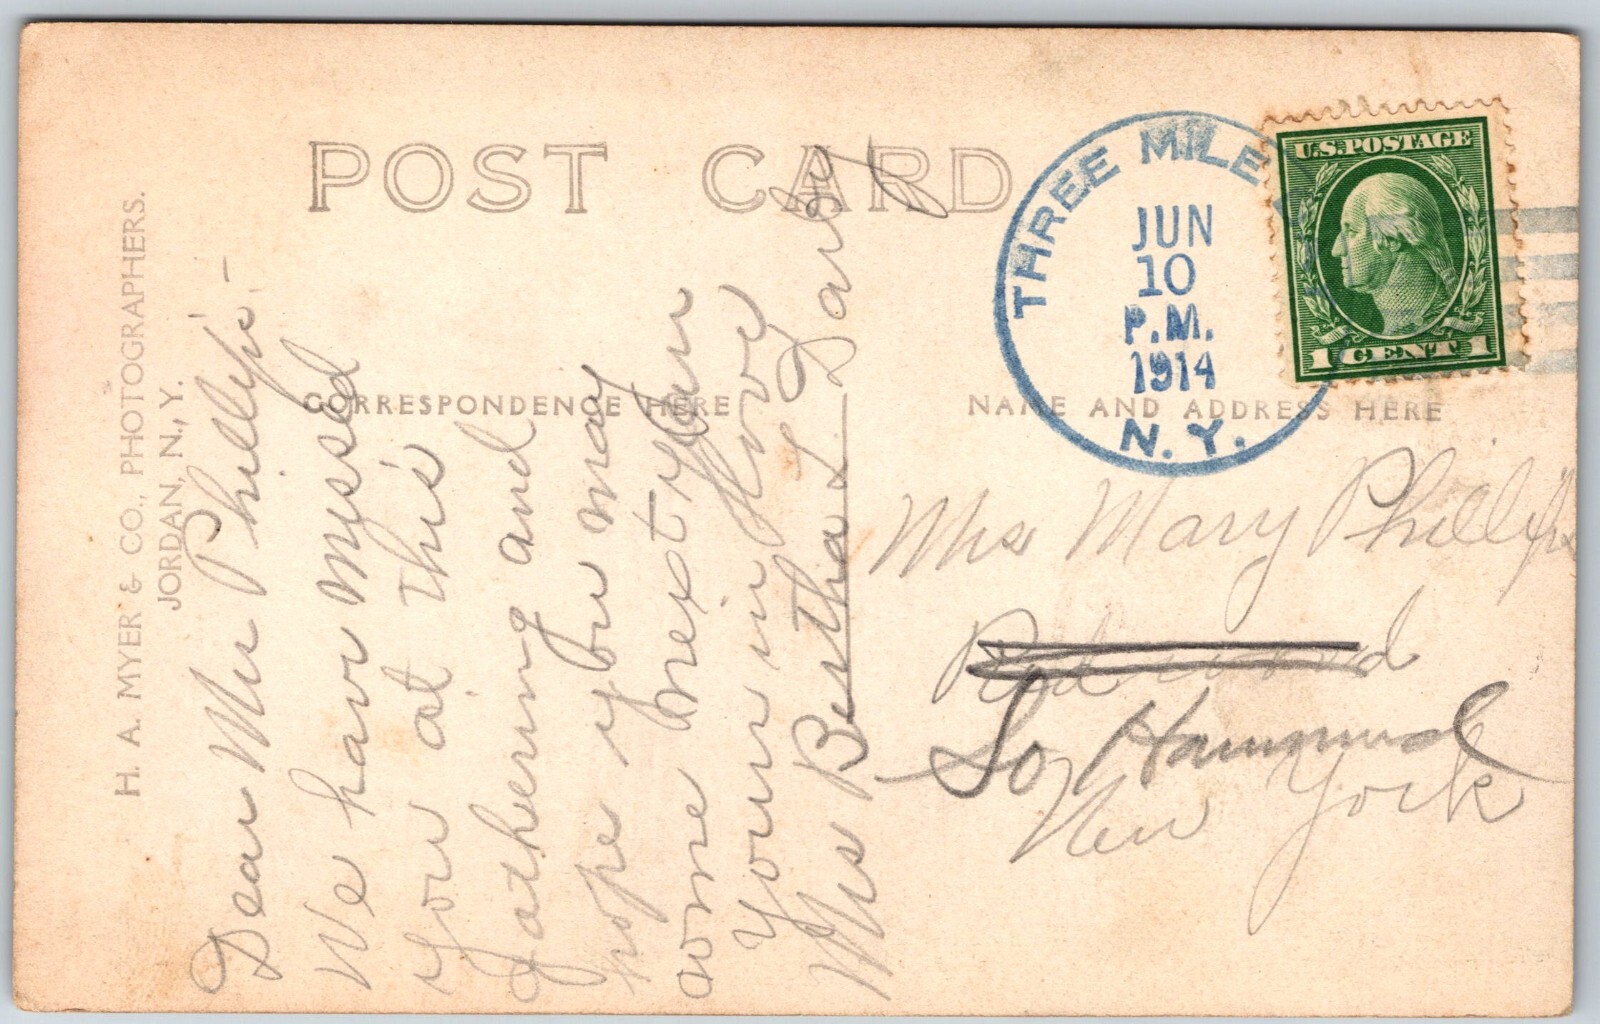 POST CARD
H. A. MYER & CO., PHOTOGRAPHERS.
JORDAN, N.Y.
CORRESPONDENCE HERE
NAME AND ADDRESS HERE
THREE MILE
JUN
10
P.M.
1914
N. Y.
U.S.POSTAGE
1 CENT 1
Dear Mrs Phillips:-
We have myssed
you at this
gathering and
hope you may
come next year
Yours in love
Mrs Bertha L
Mrs Mary Phillips
Redwood
So Hammond
New York